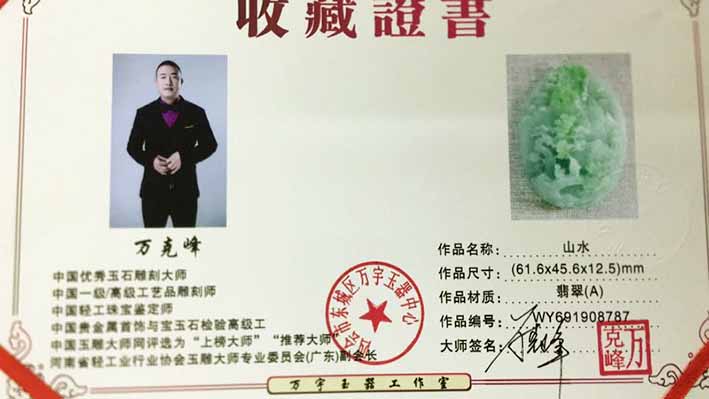 收藏證書
万克峰
中国优秀玉石雕刻大师
中国一级/高级工艺品雕刻师
中国轻工珠宝鉴定师
中国贵金属首饰与宝玉石检验高级工
中国玉雕大师网评选为“上榜大师”“推荐大师”
河南省轻工业行业协会玉雕大师专业委员会(广东)副会长
会市东城区万宇玉器中心
作品名称: 山水
作品尺寸: (61.6x45.6x12.5)mm
作品材质: 翡翠(A)
作品编号: WY691908787
大师签名: 万克峰
万克峰
万宇玉器工作室